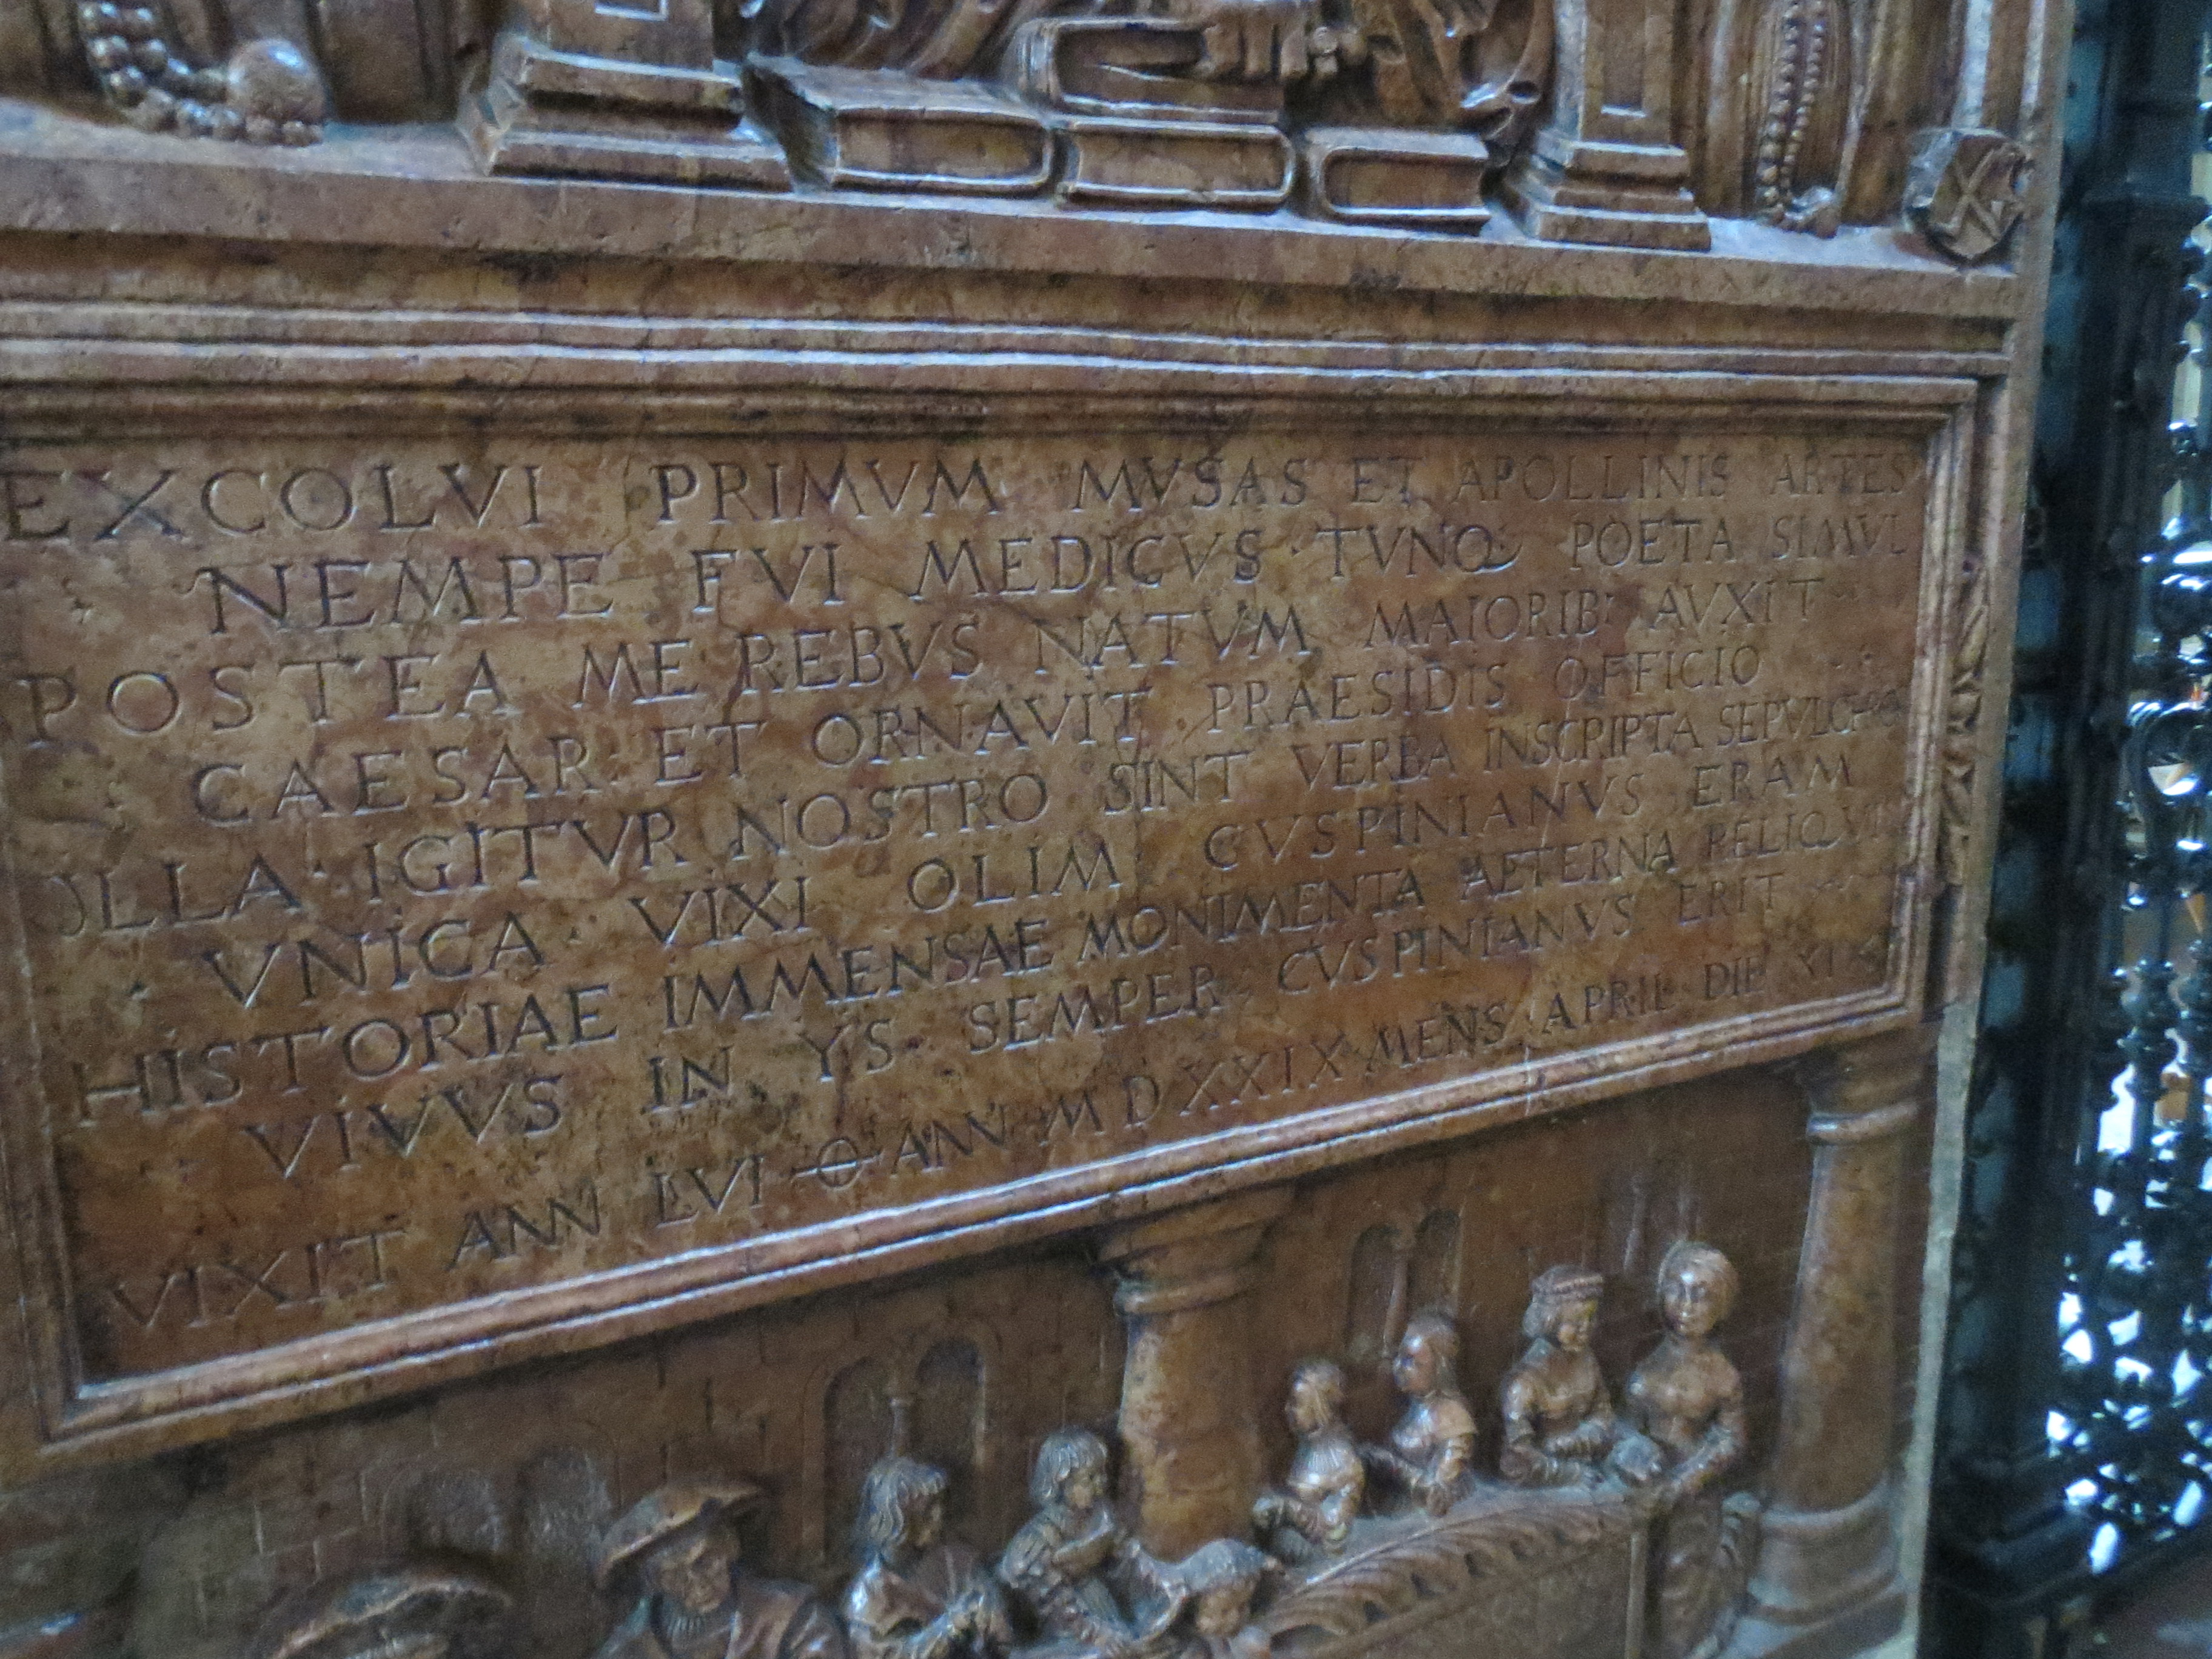 EXCOLVI PRIMVM MVSAS ET APOLLINIS ARTES
NEMPE FVI MEDICVS TVNQ POETA SIMVL
POSTEA ME REBVS NATVM MAIORIB AVXIT
CAESAR ET ORNAVIT PRAESIDIS OFFICIO
OLLA IGITVR NOSTRO SINT VERBA INSCRIPTA SEPVLCHRO
VNICA VIXI OLIM CVSPINIANVS ERAM
HISTORIAE IMMENSAE MONIMENTA AETERNA RELIQVI
VIVVS IN YS SEMPER CVSPINIANVS ERIT
VIXIT ANN LVI ANN M D XXIX MENS APRIL DIE